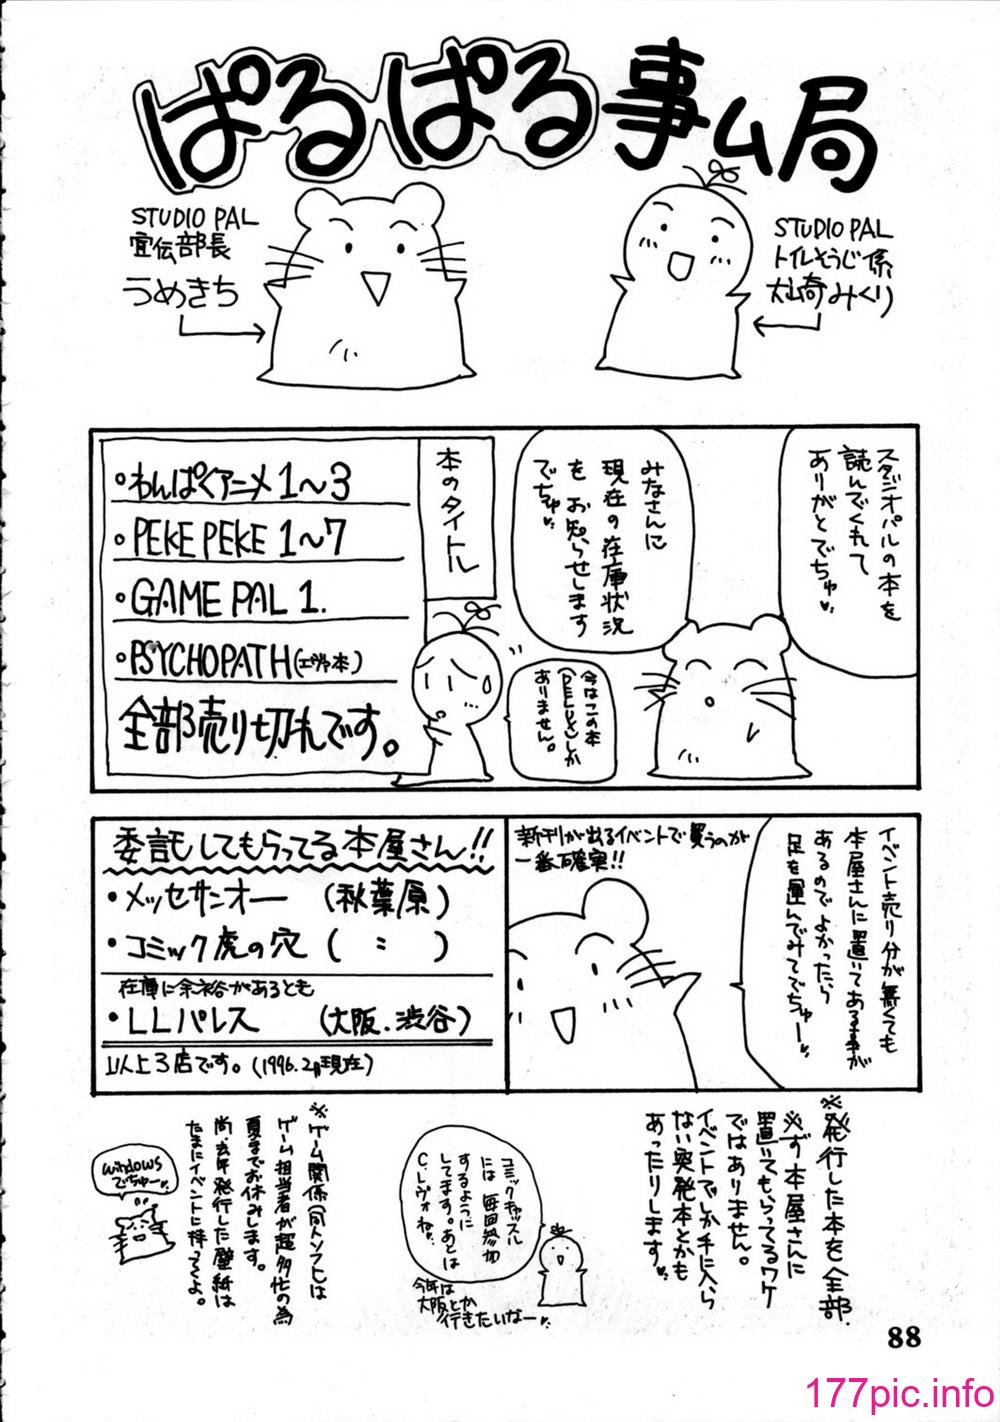 ぱるぱる事ム局
STUDIO PAL
宣伝部長
うめきち
STUDIO PAL
トイレそうじ係
犬山奇みくり
スタジオパルの本を
読んでくれて
ありがとでちゅ
みなさんに
現在の在庫状況
を お知らせします
でちゅ
今はこの本
(DELUXE)しか
ありません。
本のタイトル
•わんぱくアニメ1〜3
•PEKE PEKE 1〜7
•GAME PAL 1.
•PSYCHOPATH(エヴァ本)
全部売り切れです。
イベント売り分が無くても
本屋さんに置いてある事が
あるのでよかったら
足を運んでみてでちゅー
新刊が出るイベントで買うのが
一番確実!!
委託してもらってる本屋さん!!
•メッセサンオー (秋葉原)
•コミック虎の穴 ( 〃 )
在庫に余裕があるとも
•LLパレス (大阪.渋谷)
以上3店です。(1996.2月現在)
※発行した本を全部
※ず本屋さんに
置いてもらってるワケ
ではありません。
イベントでしか手に入ら
ない突発本とかも
あったりします
コミックキャッスル
には毎回参加
するように
してます。あとは
C.レヴォね。
今年は
大阪とか
行きたいなー
※ゲーム関係(同人ソフト)は
ゲーム担当者が超多忙の為
夏までお休みします。
尚、去年発行した壁紙は
たまにイベントに持ってくよ。
Windows
でちゅー
88
177pic.info